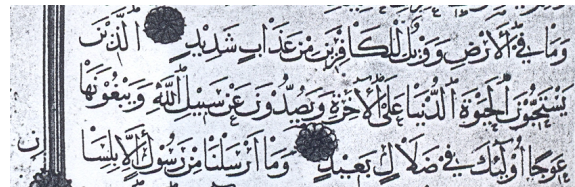 وَمَا فِي الْأَرْضِ وَوَيْلٌ لِلْكَافِرِينَ مِنْ عَذَابٍ شَدِيدٍ الَّذِينَ
يَسْتَحِبُّونَ الْحَيَوةَ الدُّنْيَا عَلَى الْآخِرَةِ وَيَصُدُّونَ عَنْ سَبِيلِ اللَّهِ وَيَبْغُونَهَا
عِوَجًا أُولَئِكَ فِي ضَلَالٍ بَعِيدٍ وَمَا أَرْسَلْنَا مِنْ رَسُولٍ إِلَّا بِلِسَا